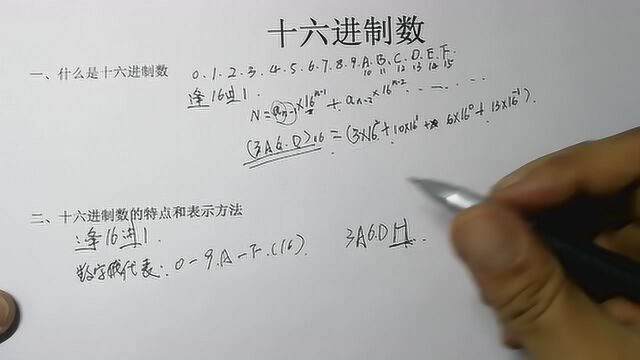 十六进制数
一、什么是十六进制数 0.1.2.3.4.5.6.7.8.9.A.B.C.D.E.F.
10 11 12 13 14 15
逢16进1.
N=a_{n-1}×16^{n-1}+a_{n-2}×16^{n-2}......
(3A6.D)_{16}=(3×16^2+10×16^1+6×16^0+13×16^{-1}).
二、十六进制数的特点和表示方法
逢16进1.
数字或代表:0-9.A-F.(16) 3A6.DH